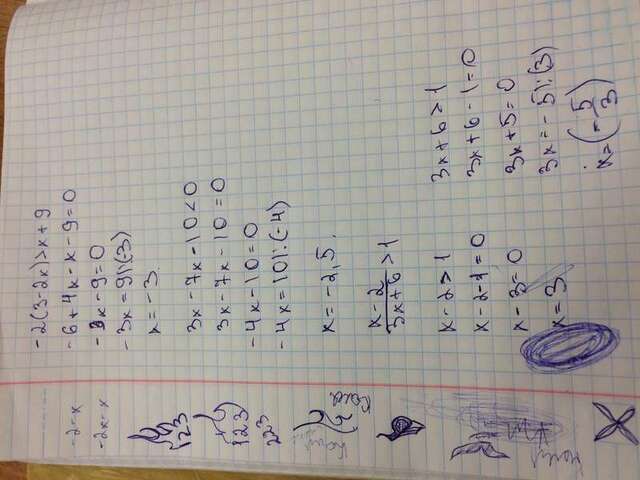 -2(3-2x)>x+9
-6+4x-x-9=0
-3x-9=0
-3x=9|:(-3)
x=-3.
3x-7x-10<0
3x-7x-10=0
-4x-10=0
-4x=10|:(-4)
x=-2,5.
x-2
3x+6 >1
x-2>1
x-2-1=0
x-3=0
x=3
3x+6>1
3x+6-1=0
3x+5=0
3x=-5|:(3)
x=(-5/3)
-2-x
-2x-x
123
123
223
Коля